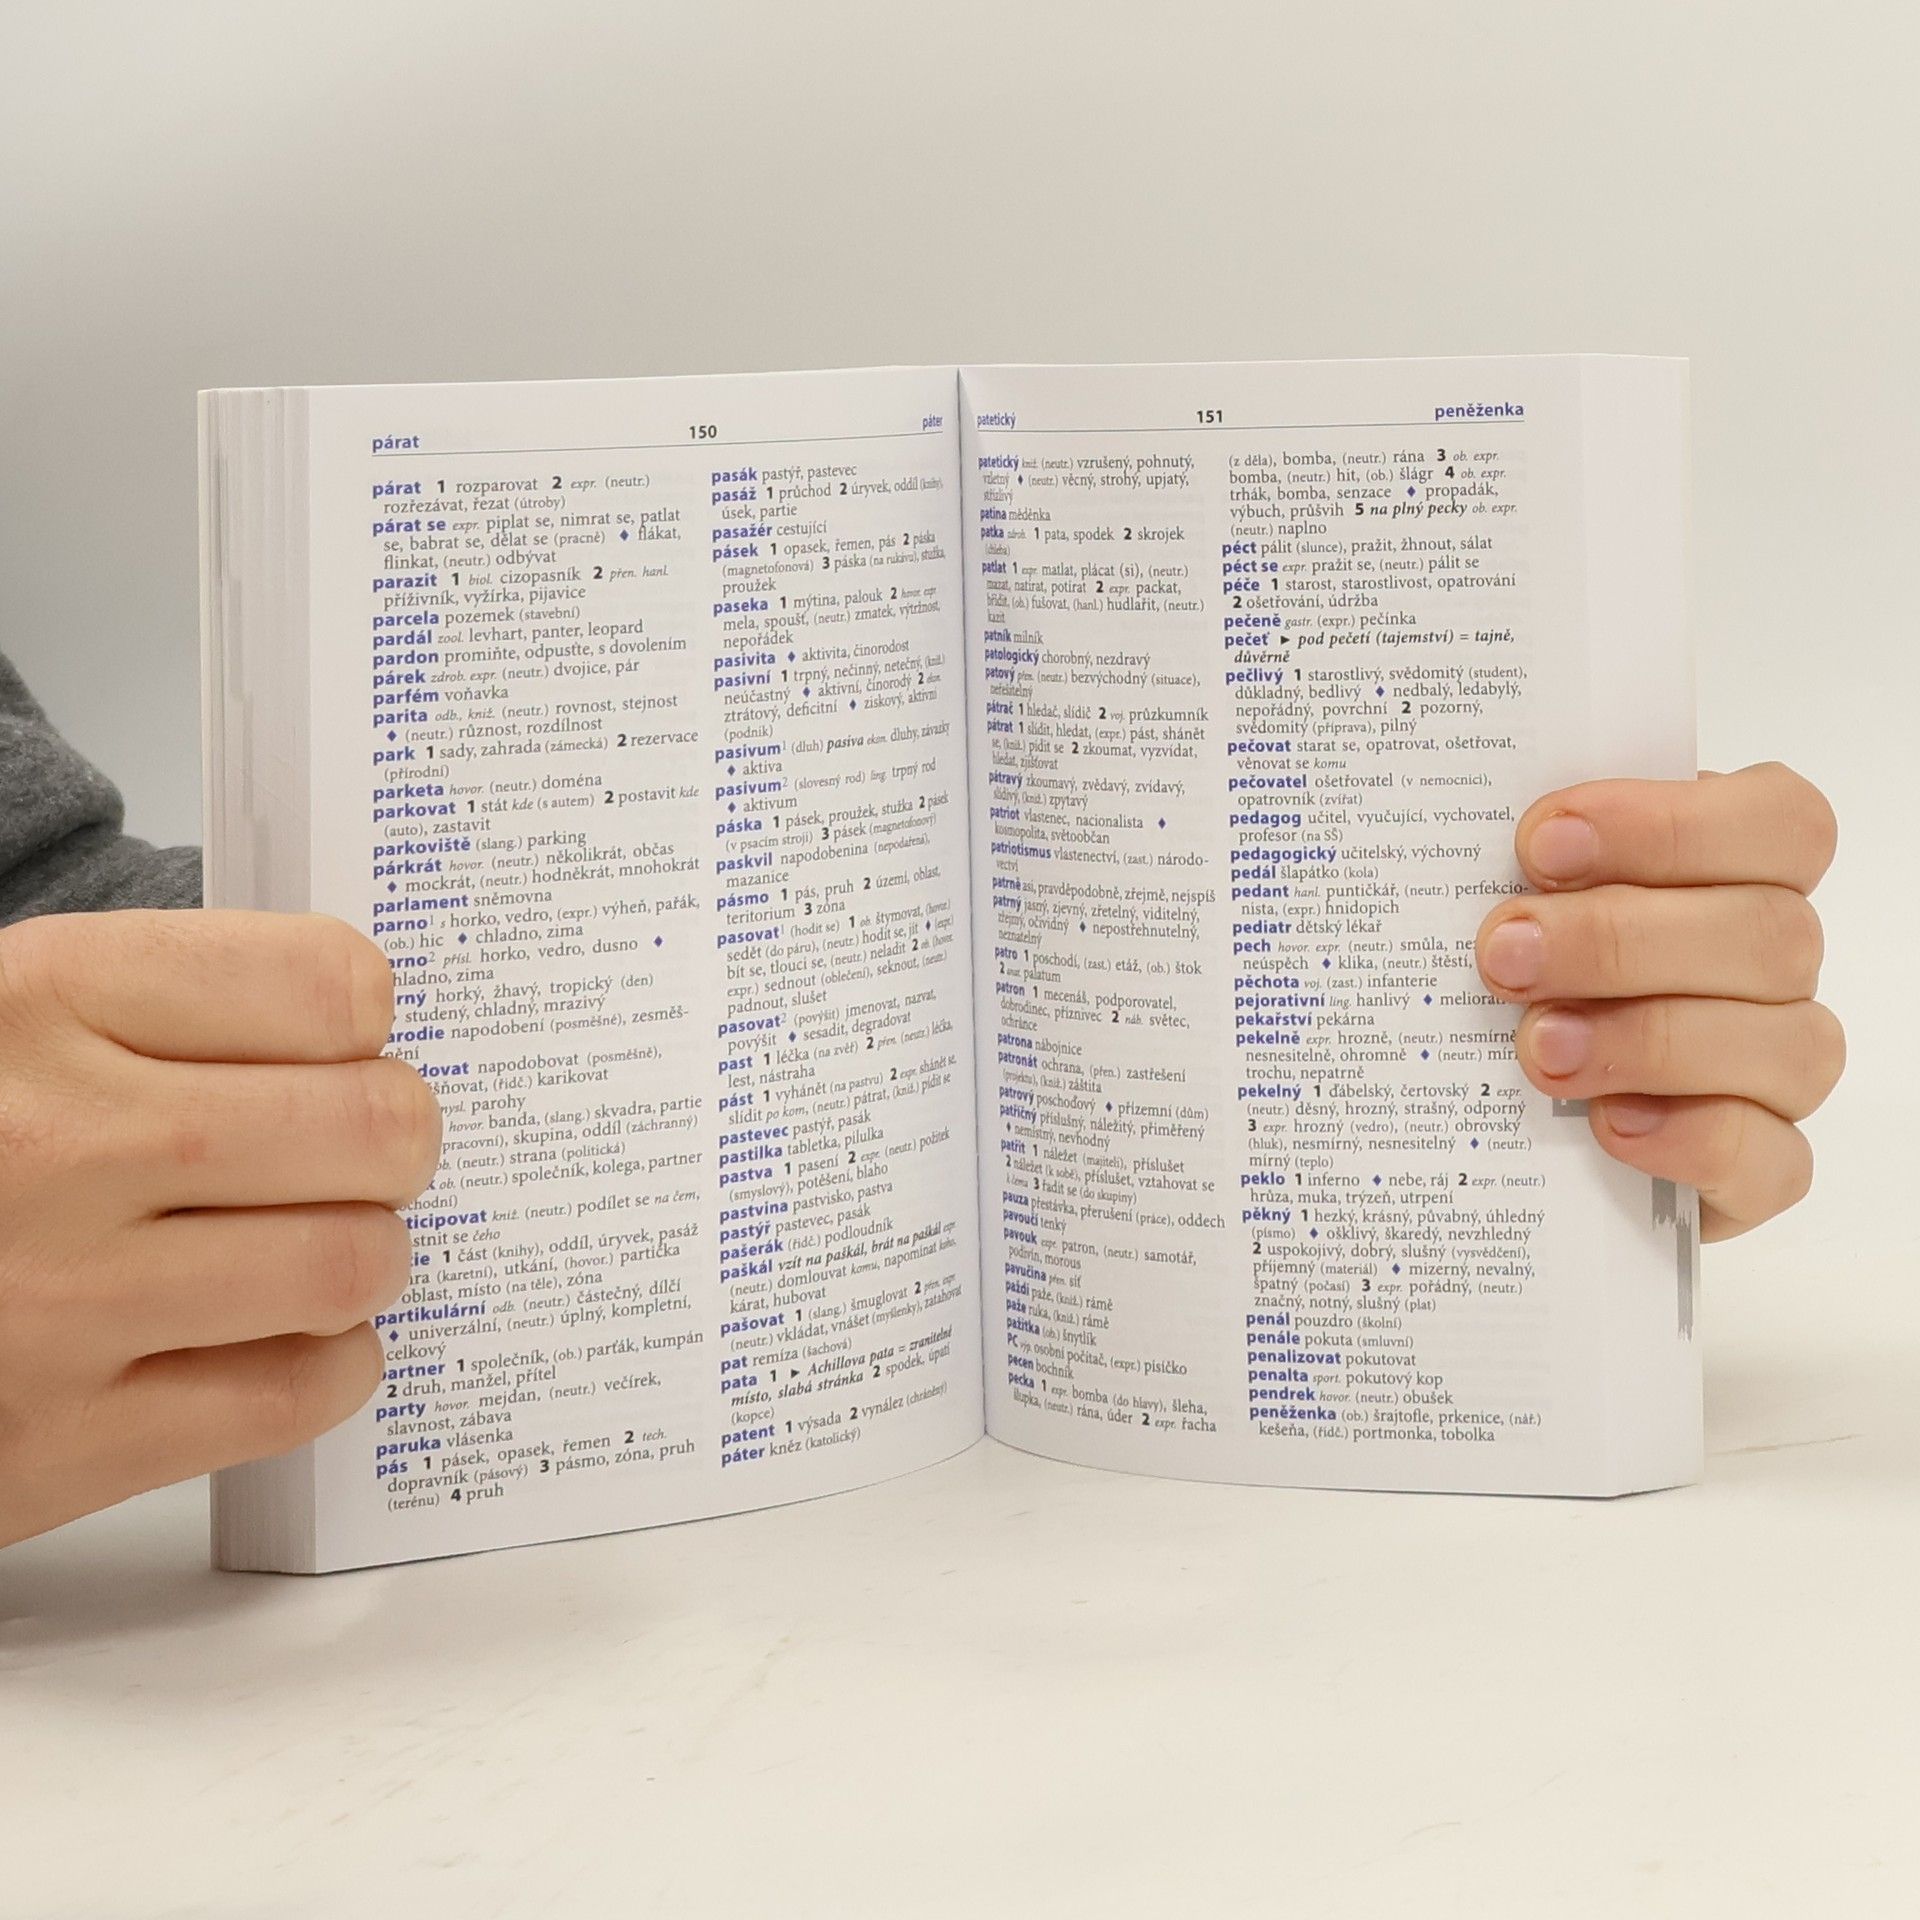 párat 150 páter
párat 1 rozparovat 2 expr. (neutr.)
rozřezávat, řezat (útroby)
párat se expr. piplat se, nimrat se, patlat
se, babrat se, dělat se (pracně) ♦ flákat,
flinkat, (neutr.) odbývat
parazit 1 biol. cizopasník 2 přen. hanl.
příživník, vyžírka, pijavice
parcela pozemek (stavební)
pardál zool. levhart, panter, leopard
pardon promiňte, odpusťte, s dovolením
párek zdrob. expr. (neutr.) dvojice, pár
parfém voňavka
parita odb., kniž. (neutr.) rovnost, stejnost
♦ (neutr.) různost, rozdílnost
park 1 sady, zahrada (zámecká) 2 rezervace
(přírodní)
parketa hovor. (neutr.) doména
parkovat 1 stát kde (s autem) 2 postavit kde
(auto), zastavit
parkoviště (slang.) parking
párkrát hovor. (neutr.) několikrát, občas
♦ mockrát, (neutr.) hodněkrát, mnohokrát
parlament sněmovna
parno¹ s horko, vedro, (expr.) výheň, pařák,
(ob.) hic ♦ chladno, zima
arno² přísl. horko, vedro, dusno ♦
hladno, zima
rný horký, žhavý, tropický (den)
studený, chladný, mrazivý
arodie napodobení (posměšné), zesměš-
nění
dovat napodobovat (posměšně),
šňovat, (řidč.) karikovat
mysl. parohy
hovor. banda, (slang.) skvadra, partie
pracovní), skupina, oddíl (záchranný)
ob. (neutr.) strana (politická)
k ob. (neutr.) společník, kolega, partner
chodní)
ticipovat kniž. (neutr.) podílet se na čem,
stnit se čeho
ie 1 část (knihy), oddíl, úryvek, pasáž
ra (karetní), utkání, (hovor.) partička
oblast, místo (na těle), zóna
partikulární odb. (neutr.) částečný, dílčí
♦ univerzální, (neutr.) úplný, kompletní,
celkový
artner 1 společník, (ob.) parťák, kumpán
2 druh, manžel, přítel
party hovor. mejdan, (neutr.) večírek,
slavnost, zábava
paruka vlásenka
pás 1 pásek, opasek, řemen 2 tech.
dopravník (pásový) 3 pásmo, zóna, pruh
(terénu) 4 pruh
pasák pastýř, pastevec
pasáž 1 průchod 2 úryvek, oddíl (knihy),
úsek, partie
pasažér cestující
pásek 1 opasek, řemen, pás 2 páska
(magnetofonová) 3 páska (na rukávu), stužka,
proužek
paseka 1 mýtina, palouk 2 hovor. expr.
mela, spoušť, (neutr.) zmatek, výtržnost,
nepořádek
pasivita ♦ aktivita, činorodost
pasivní 1 trpný, nečinný, netečný, (kniž.)
neúčastný ♦ aktivní, činorodý 2 ekon.
ztrátový, deficitní ♦ ziskový, aktivní
(podnik)
pasivum¹ (dluh) pasiva ekon. dluhy, závazky
♦ aktiva
pasivum² (slovesný rod) ling. trpný rod
♦ aktivum
páska 1 pásek, proužek, stužka 2 pásek
(v psacím stroji) 3 pásek (magnetofonový)
paskvil napodobenina (nepodařená),
mazanice
pásmo 1 pás, pruh 2 území, oblast,
teritorium 3 zóna
pasovat¹ (hodit se) 1 ob. štymovat, (hovor.)
sedět (do páru), (neutr.) hodit se, jít ♦ (expr.)
bít se, tlouci se, (neutr.) neladit 2 ob. (hovor.
expr.) sednout (oblečení), seknout, (neutr.)
padnout, slušet
pasovat² (povýšit) jmenovat, nazvat,
povýšit ♦ sesadit, degradovat
past 1 léčka (na zvěř) 2 přen. (neutr.) léčka,
lest, nástraha
pást 1 vyhánět (na pastvu) 2 expr. shánět se,
slídit po kom, (neutr.) pátrat, (kniž.) pídit se
pastevec pastýř, pasák
pastilka tabletka, pilulka
pastva 1 pasení 2 expr. (neutr.) požitek
(smyslový), potěšení, blaho
pastvina pastvisko, pastva
pastýř pastevec, pasák
pašerák (řidč.) podloudník
paškál vzít na paškál, brát na paškál expr.
(neutr.) domlouvat komu, napomínat koho,
kárat, hubovat
pašovat 1 (slang.) šmuglovat 2 přen. expr.
(neutr.) vkládat, vnášet (myšlenky), zatahovat
pat remíza (šachová)
pata 1 ► Achillova pata = zranitelné
místo, slabá stránka 2 spodek, úpatí
(kopce)
patent 1 výsada 2 vynález (chráněný)
páter kněz (katolický)
patetický 151 peněženka
patetický kniž. (neutr.) vzrušený, pohnutý,
vzletný ♦ (neutr.) věcný, strohý, upjatý,
střízlivý
patina měděnka
patka zdrob. 1 pata, spodek 2 skrojek
(chleba)
patlat 1 expr. matlat, plácat (si), (neutr.)
mazat, natírat, potírat 2 expr. packat,
břídit, (ob.) fušovat, (hanl.) hudlařit, (neutr.)
kazit
patník milník
patologický chorobný, nezdravý
patový přen. (neutr.) bezvýchodný (situace),
neřešitelný
pátrač 1 hledač, slídič 2 voj. průzkumník
pátrat 1 slídit, hledat, (expr.) pást, shánět
se, (kniž.) pídit se 2 zkoumat, vyzvídat,
hledat, zjišťovat
pátravý zkoumavý, zvědavý, zvídavý,
slídivý, (kniž.) zpytavý
patriot vlastenec, nacionalista ♦
kosmopolita, světoobčan
patriotismus vlastenectví, (zast.) národo-
vectví
patrně asi, pravděpodobně, zřejmě, nejspíš
patrný jasný, zjevný, zřetelný, viditelný,
zřejmý, očividný ♦ nepostřehnutelný,
neznatelný
patro 1 poschodí, (zast.) etáž, (ob.) štok
2 anat. palatum
patron 1 mecenáš, podporovatel,
dobrodinec, příznivec 2 náb. světec,
ochránce
patrona nábojnice
patronát ochrana, (přen.) zastřešení
(projektu), (kniž.) záštita
patrový poschoďový ♦ přízemní (dům)
patřičný příslušný, náležitý, přiměřený
♦ nemístný, nevhodný
patřit 1 náležet (majiteli), příslušet
2 náležet (k sobě), příslušet, vztahovat se
k čemu 3 řadit se (do skupiny)
pauza přestávka, přerušení (práce), oddech
pavoučí tenký
pavouk expr. patron, (neutr.) samotář,
podivín, morous
pavučina přen. síť
paždí paže, (kniž.) rámě
paže ruka, (kniž.) rámě
pažitka (ob.) šnytlík
PC výp. osobní počítač, (expr.) písíčko
pecen bochník
pecka 1 expr. bomba (do hlavy), šleha,
šlupka, (neutr.) rána, úder 2 expr. řacha
(z děla), bomba, (neutr.) rána 3 ob. expr.
bomba, (neutr.) hit, (ob.) šlágr 4 ob. expr.
trhák, bomba, senzace ♦ propadák,
výbuch, průšvih 5 na plný pecky ob. expr.
(neutr.) naplno
péct pálit (slunce), pražit, žhnout, sálat
péct se expr. pražit se, (neutr.) pálit se
péče 1 starost, starostlivost, opatrování
2 ošetřování, údržba
pečeně gastr. (expr.) pečínka
pečeť ► pod pečetí (tajemství) = tajně,
důvěrně
pečlivý 1 starostlivý, svědomitý (student),
důkladný, bedlivý ♦ nedbalý, ledabylý,
nepořádný, povrchní 2 pozorný,
svědomitý (příprava), pilný
pečovat starat se, opatrovat, ošetřovat,
věnovat se komu
pečovatel ošetřovatel (v nemocnici),
opatrovník (zvířat)
pedagog učitel, vyučující, vychovatel,
profesor (na SŠ)
pedagogický učitelský, výchovný
pedál šlapátko (kola)
pedant hanl. puntičkář, (neutr.) perfekcio-
nista, (expr.) hnidopich
pediatr dětský lékař
pech hovor. expr. (neutr.) smůla, ne
neúspěch ♦ klika, (neutr.) štěstí,
pěchota voj. (zast.) infanterie
pejorativní ling. hanlivý ♦ meliora
pekařství pekárna
pekelně expr. hrozně, (neutr.) nesmírně
nesnesitelně, ohromně ♦ (neutr.) mír
trochu, nepatrně
pekelný 1 ďábelský, čertovský 2 expr.
(neutr.) děsný, hrozný, strašný, odporný
3 expr. hrozný (vedro), (neutr.) obrovský
(hluk), nesmírný, nesnesitelný ♦ (neutr.)
mírný (teplo)
peklo 1 inferno ♦ nebe, ráj 2 expr. (neutr.)
hrůza, muka, trýzeň, utrpení
pěkný 1 hezký, krásný, půvabný, úhledný
(písmo) ♦ ošklivý, škaredý, nevzhledný
2 uspokojivý, dobrý, slušný (vysvědčení),
příjemný (materiál) ♦ mizerný, nevalný,
špatný (počasí) 3 expr. pořádný, (neutr.)
značný, notný, slušný (plat)
penál pouzdro (školní)
penále pokuta (smluvní)
penalizovat pokutovat
penalta sport. pokutový kop
pendrek hovor. (neutr.) obušek
peněženka (ob.) šrajtofle, prkenice, (nář.)
kešeňa, (řidč.) portmonka, tobolka